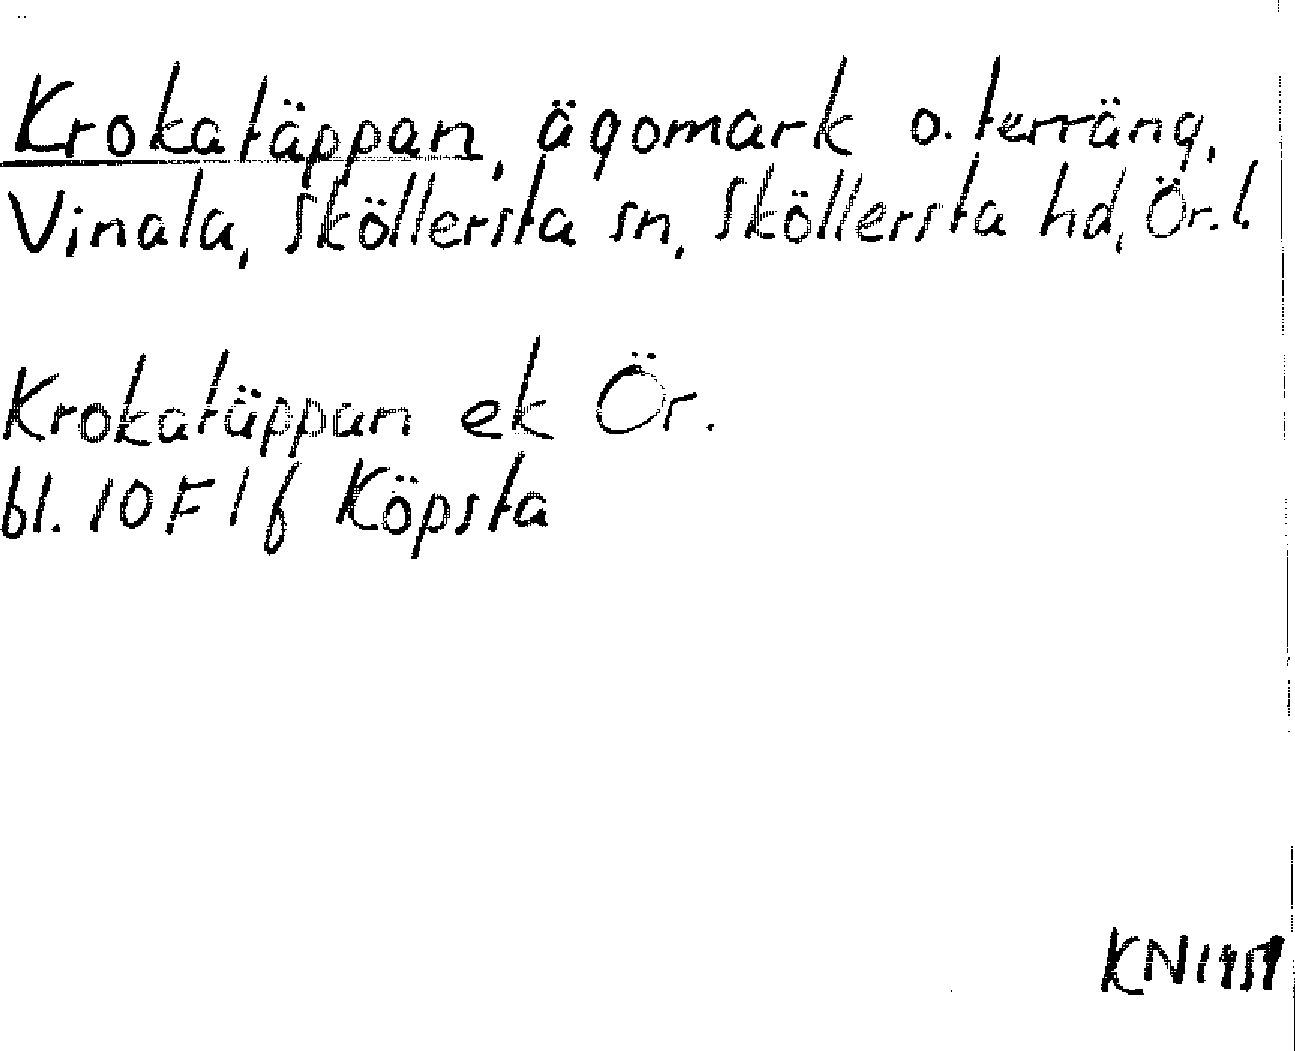 Krokatäppan, ägomark o. terräng,
Vinala, Sköllersta sn, Sköllersta hd, Ör. l.
Krokatäppan ek Ör.
bl. 10 F 1 f Köpsta
KN 1959